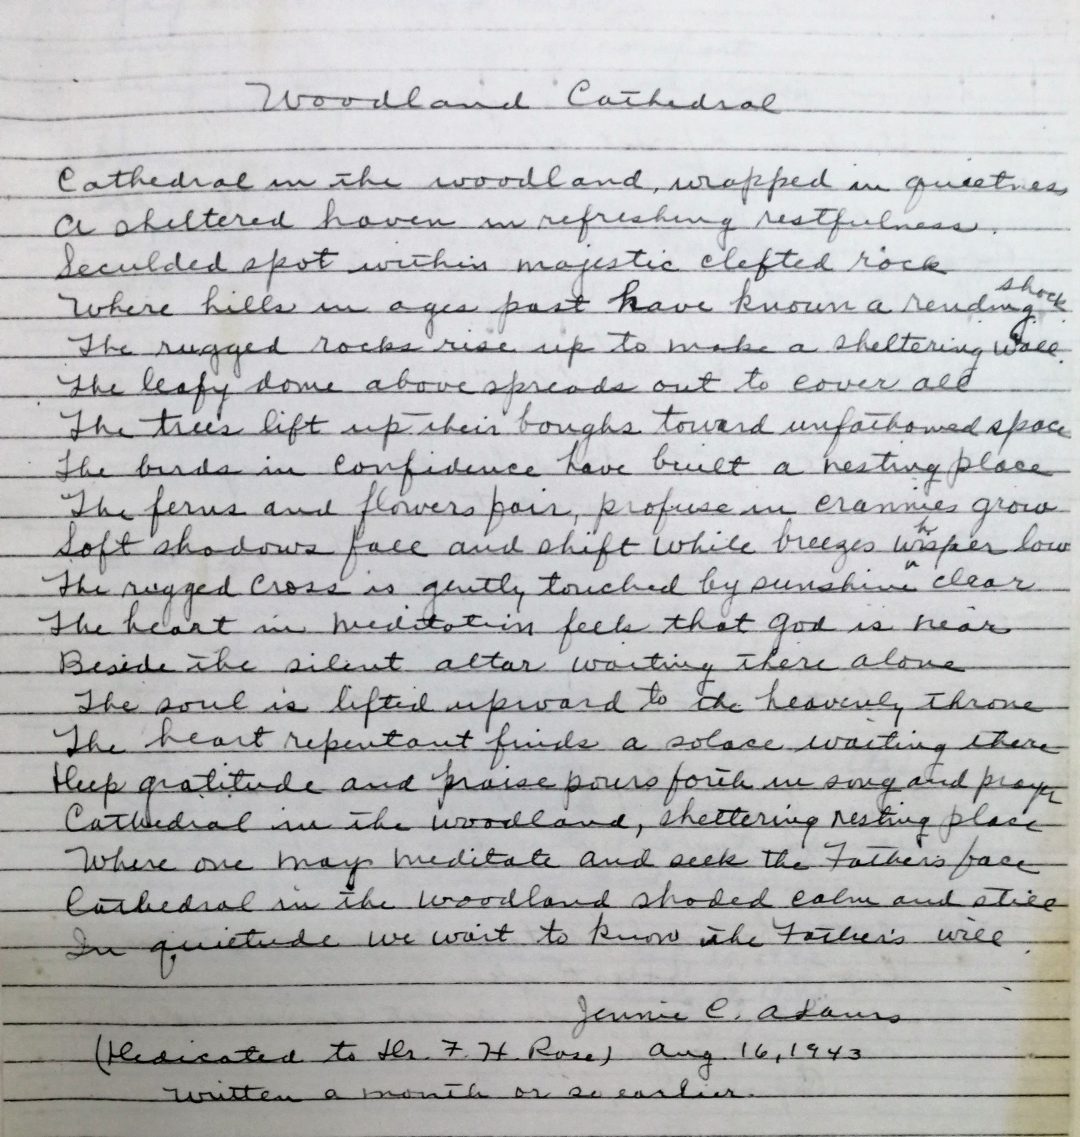 Woodland Cathedral
Cathedral in the woodland, wrapped in quietness
A sheltered haven in refreshing restfulness.
Seculded spot within majestic clefted rock
Where hills in ages past have known a rending shock
The rugged rocks rise up to make a sheltering wall.
The leafy dome above spreads out to cover all
The trees lift up their boughs toward unfathomed space
The birds in confidence have built a nesting place
The ferns and flowers fair, profuse in crannies grow
Soft shadows fall and shift while breezes whisper low
The rugged cross is gently touched by sunshine clear
The heart in meditation feels that God is near
Beside the silent altar waiting there alone
The soul is lifted upward to the heavenly throne
The heart repentant finds a solace waiting there
Deep gratitude and praise pours forth in song and prayer
Cathedral in the woodland, sheltering resting place
Where one may meditate and seek the Father's face
Cathedral in the woodland shaded calm and still
In quietude we wait to know the Father's will.
Jennie C. Adams
(Dedicated to Dr. F. H. Rose) Aug. 16, 1943
Written a month or so earlier.